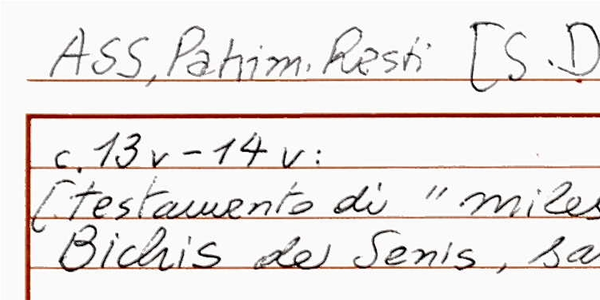 ASS, Patrim. Resti [S.D
c. 13v-14v:
[testamento di "miles
Bichis de Senis, sa